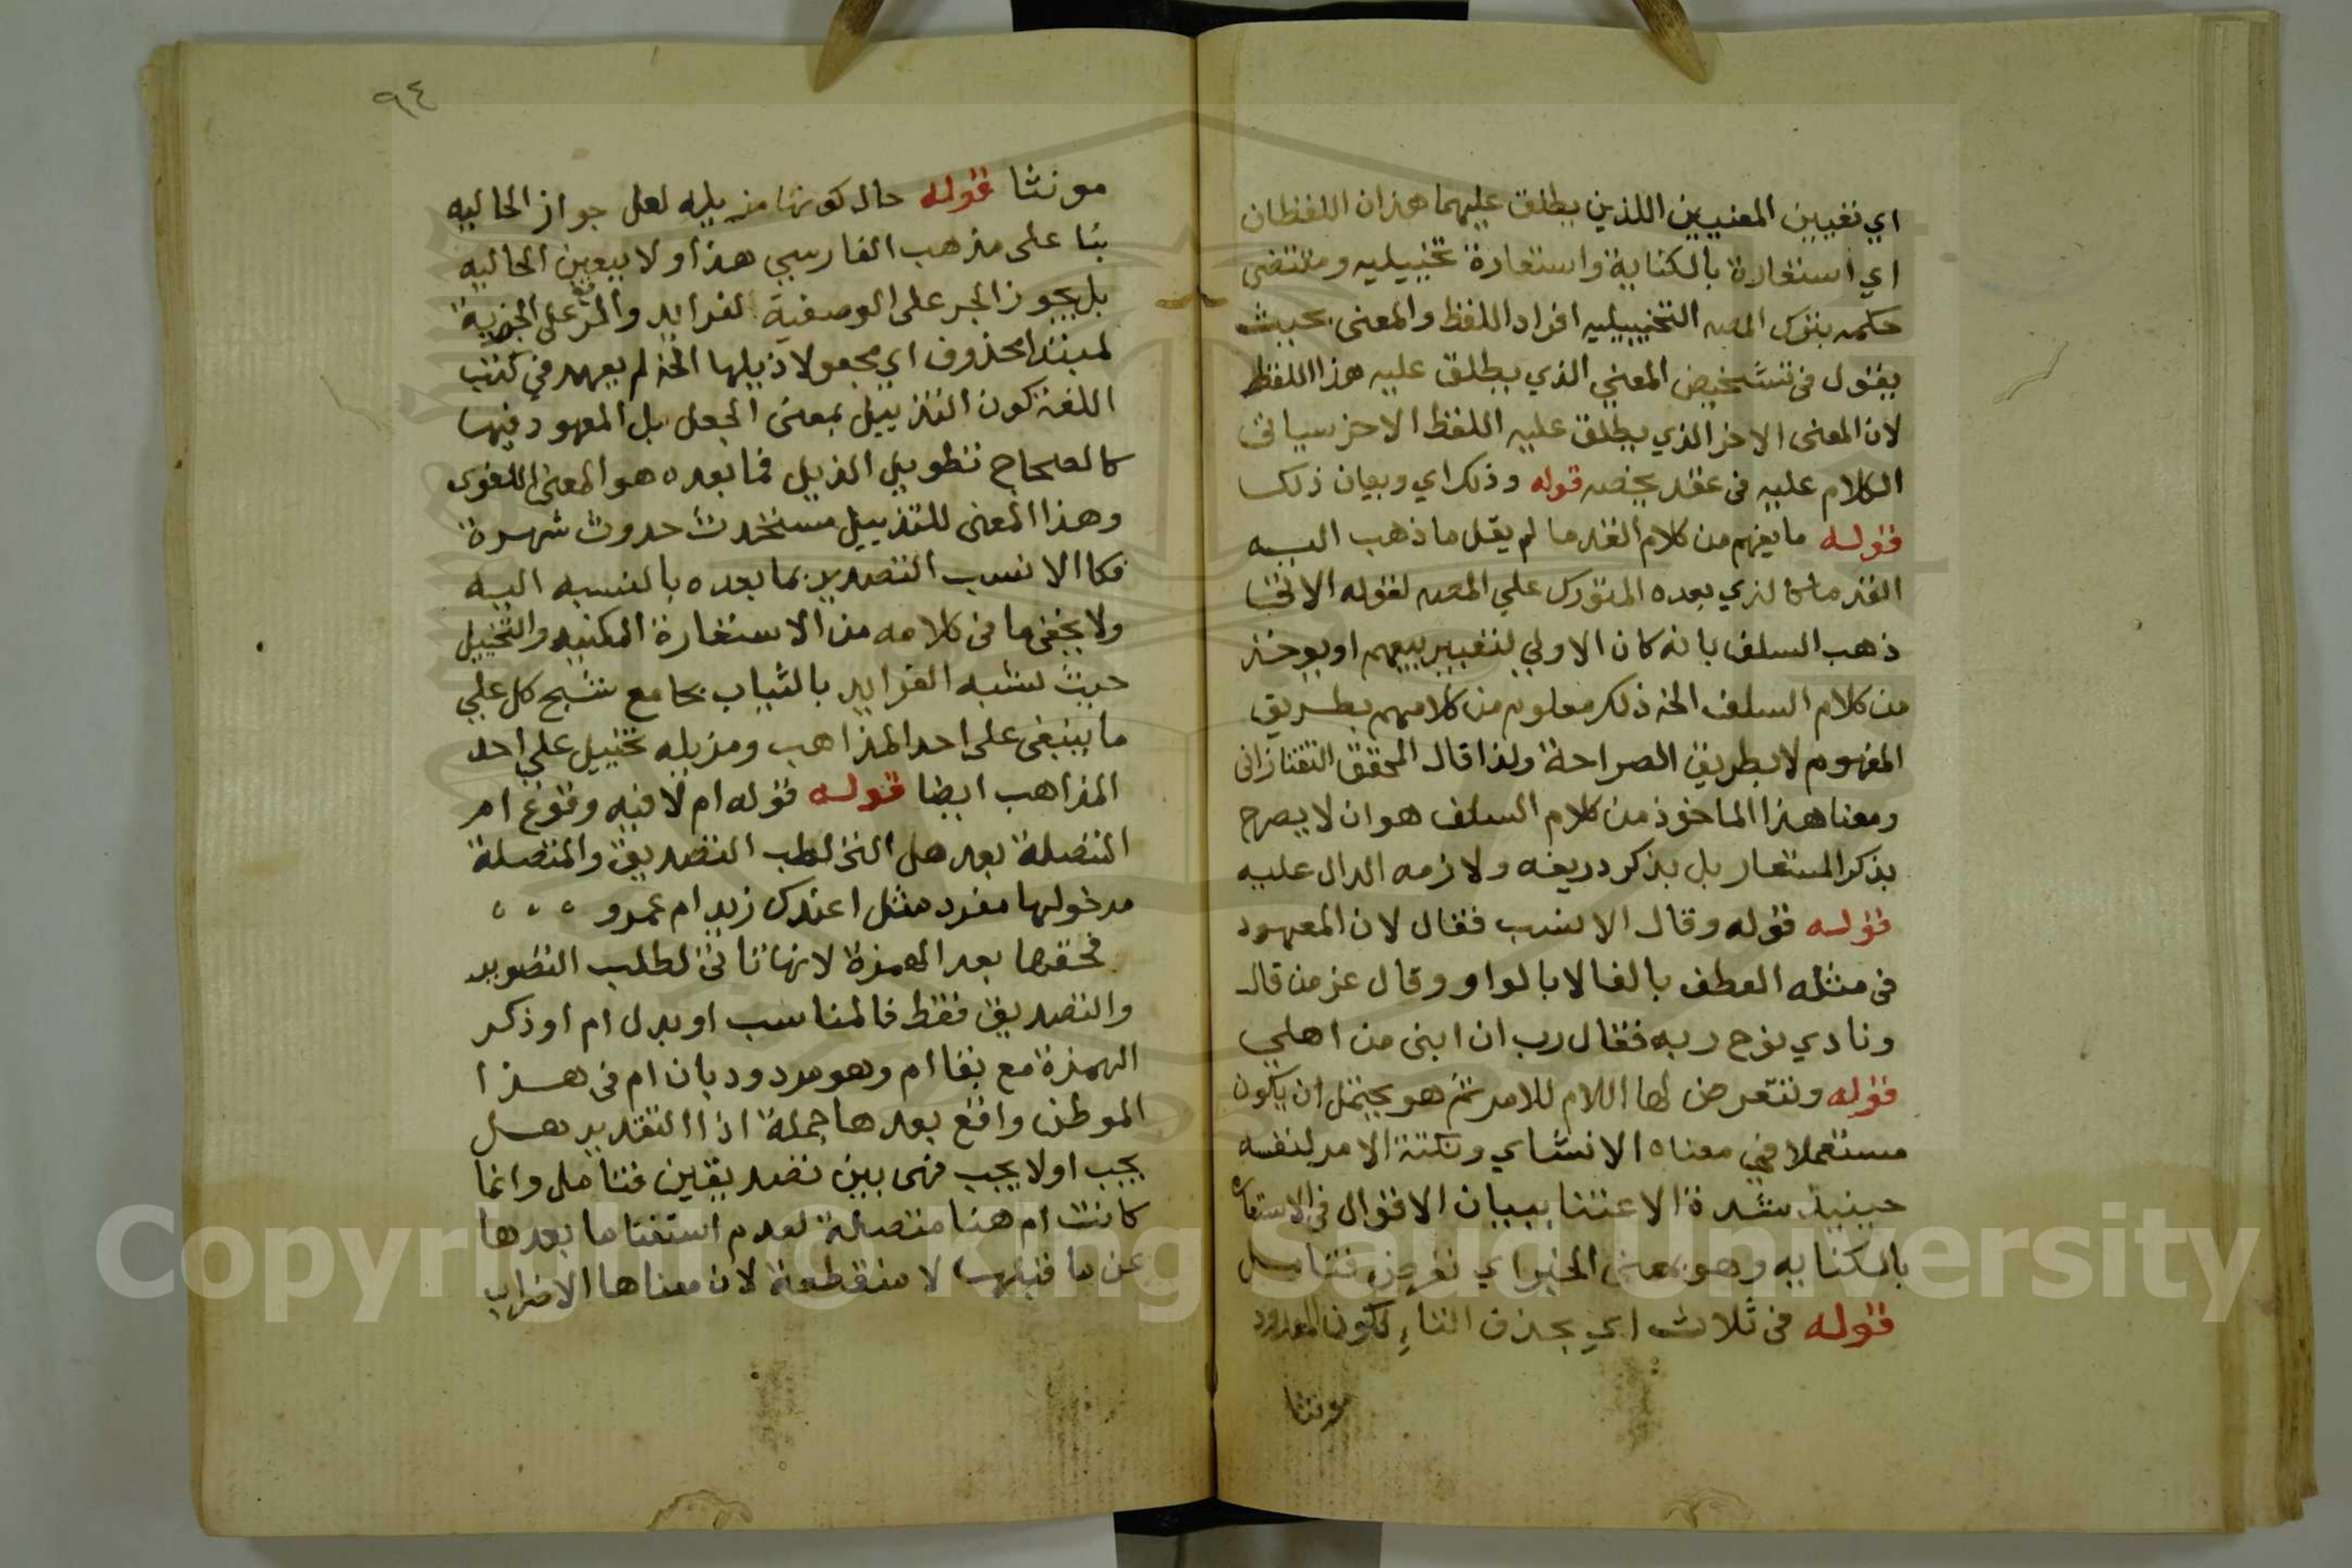 اي تعيين المعنيين اللذين يطلق عليهما هذان اللفظان
اي استعارة بالكناية واستعارة تخييليه ومقتضى
حكمه بترك المصه التخييليه افراد اللفظ والمعنى بحيث
يقول فى تشخيص المعني الذي يطلق عليه هذا اللفظ
لان المعنى الاخر الذي يطلق عليه اللفظ الاخر سياتى
الكلام عليه فى عقد يخصه قوله وذلك اي وبيان ذلك
قوله ما يفهم من كلام القدما لم يقل ما ذهب اليه
القدما كالذي بعده المتورك علي المصه لقوله الاتى
ذهب السلف بانه كان الاولي لتغيير بيعهم او يوخذ
من كلام السلف الخ ذلك معلوم من كلامهم بطريق
المفهوم لا بطريق الصراحة ولذا قال المحقق التفتازانى
ومعنا هذا الماخوذ من كلام السلف هو ان لا يصرح
بذكر المستعار بل بذكر دريفه ولازمه الدال عليه
قوله قوله وقال الانسب فقال لان المعهود
فى مثله العطف بالفا لا بالواو وقال عز من قال
ونادي نوح ربه فقال رب ان ابنى من اهلي
قوله ونتعرض لها اللام للامر ثم هو يحتمل ان يكون
مستعملا في معناه الانشاي ونكتة الامر لنفسه
حينيذ شدة الاعتنا ببيان الاقوال فى الاستعاره
بالكنايه وهو بمعنى الخبر اي نعرض فتامل
قوله فى ثلاث اي بحذف التاء لكون المعدود
مونثا
٩٤
مونثا قوله حال كونها مذيله لعل جواز الحاليه
بنا على مذهب الفارسي هذا ولا يتعين الحاليه
بل يجوز الجر على الوصفية لفرايد والرفع على الخبرية
لمبتدا محذوف اي مجعولا ذيلها الخ لم يعهد في كتب
اللغة كون التذييل بمعنى الجعل بل المعهود فيها
كالصحاح تطويل الذيل فما بعده هو المعنى اللغوى
وهذا المعنى للتذييل مستحدث حدوث شهرة
فكا الانسب التصدير بما بعده بالنسبه اليه
ولا يخفى ما فى كلامه من الاستعارة المكنيه والتخييل
حيث شبه الفرايد بالثياب بجامع شبح كل علي
ما ينبغى على احد المذاهب ومذيله تخييل علي احد
المذاهب ايضا قوله قوله ام لا فيه وقوع ام
التصلة بعد هل التى لطب التصديق والمتصلة
مدخولها مفرد مثل اعندك زيد ام عمرو
فحقها بعد الهمزة لانها تاتى لطلب التصوير
والتصديق فقط فالمناسب او بدل ام او ذكر
الهمزة مع بقا ام وهو مردود بان ام فى هذا
الموطن واقع بعدها جملة اذا التقدير هل
يجب او لا يجب فهى بين تصديقين فتامل وانما
كانت ام هنا متصلة لعدم استغنا ما بعدها
عن ما قبلها لا منقطعة لان معناها الاضراب
Copyright © King Saud University